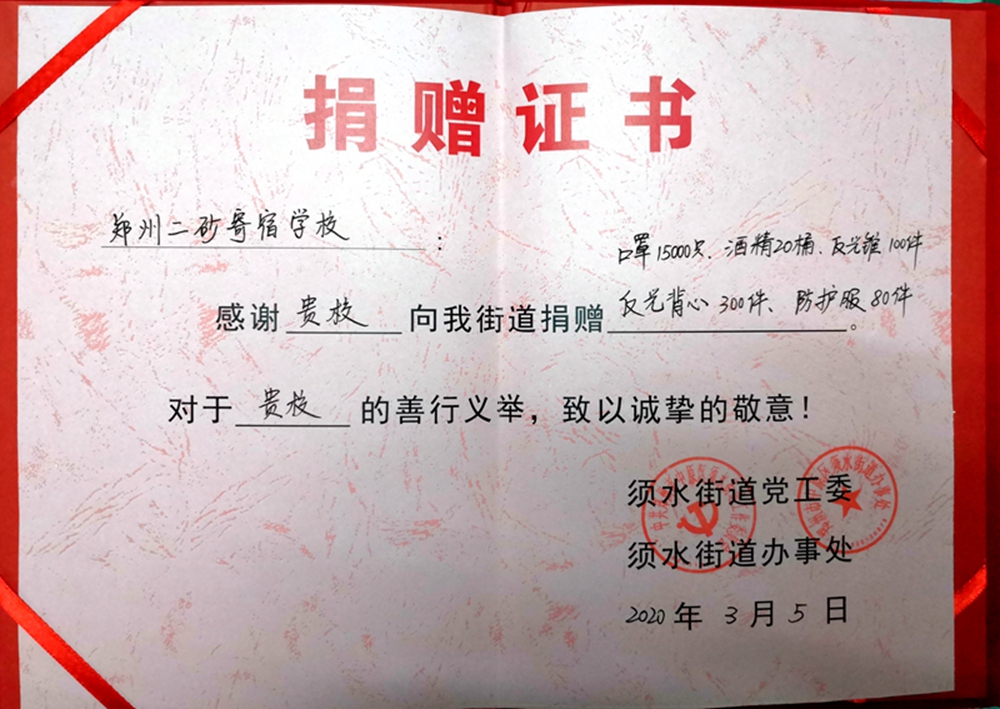 捐赠证书
郑州二砂寄宿学校：
口罩15000只、酒精20桶、反光锥100件
感谢贵校向我街道捐赠反光背心300件、防护服80件。
对于贵校的善行义举，致以诚挚的敬意！
须水街道党工委
须水街道办事处
2020年3月5日